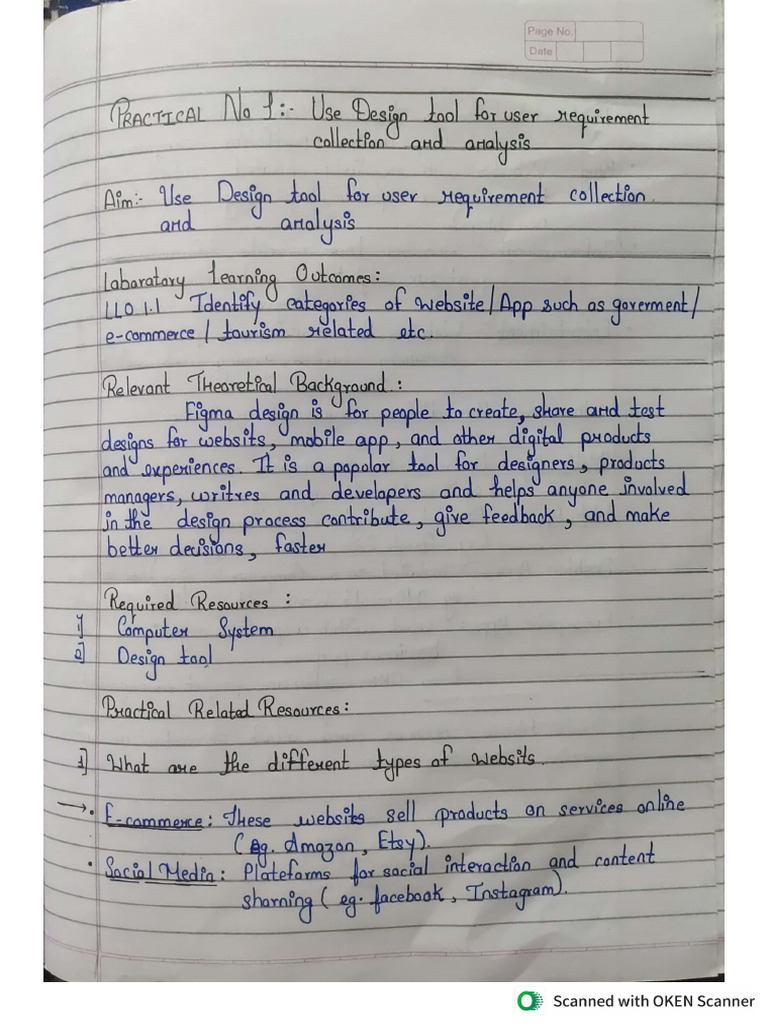 Page No.
Date
PRACTICAL No 1:- Use Design tool for user requirement
collection and analysis
Aim:- Use Design tool for user requirement collection
and analysis
Labaratory Learning Outcomes:
LLO 1.1 Identify categories of website/App such as goverment/
e-commerce/tourism related etc.
Relevant Theoretical Background:
Figma design is for people to create, share and test
designs for websits, mobile app, and other digital products
and experiences. It is a popolar tool for designers, products
managers, writres and developers and helps anyone involved
in the design process contribute, give feedback, and make
better decisions, faster
Required Resources :
1] Computer System
2] Design tool
Practical Related Resources:
1] What are the different types of websits.
→ • E-commerce: These websits sell products on services online
(eg. Amazon, Etsy).
• Social Media: Plateforms for social interaction and content
sharning (eg. facebook, Instagram).
Scanned with OKEN Scanner